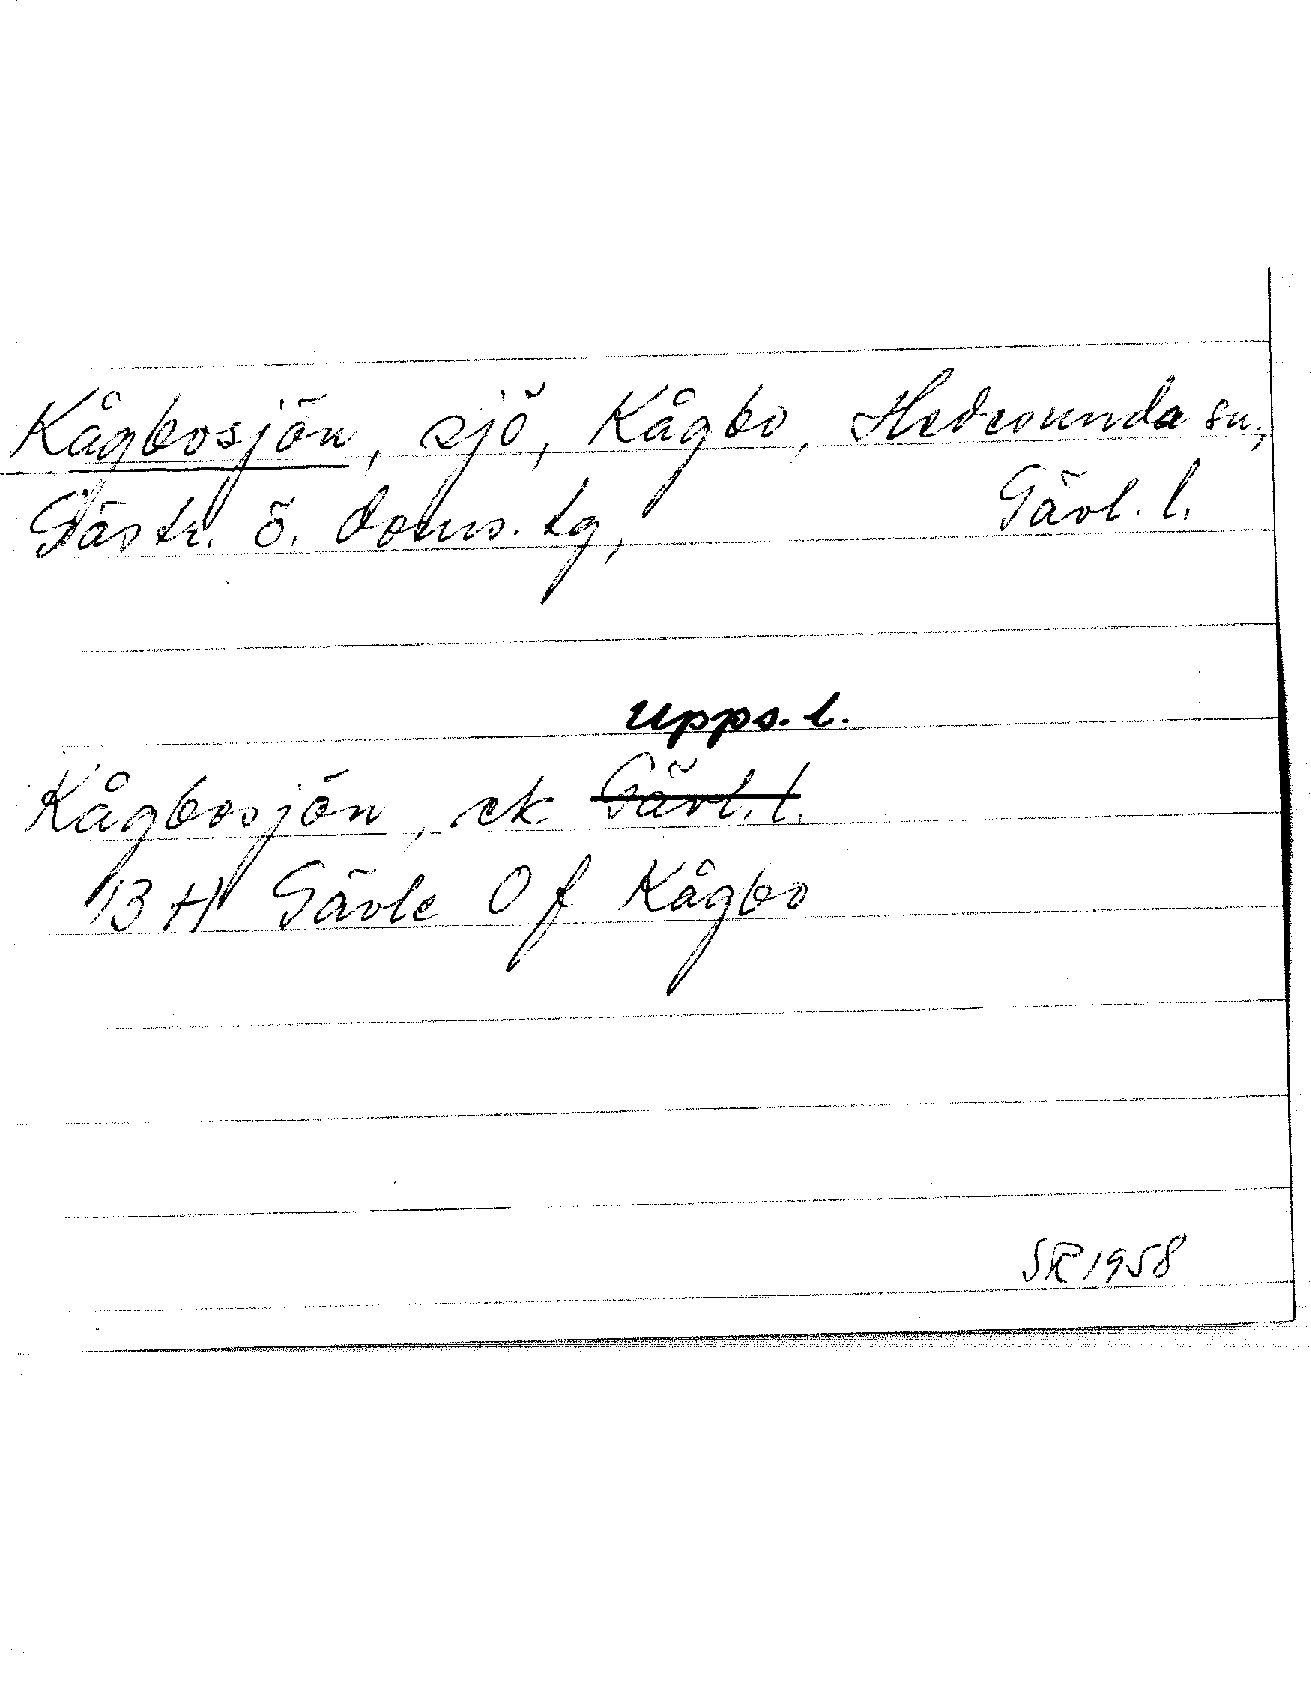 Kågbosjön, sjö, Kågbo, Hedesunda sn,
Gästr. ö. doms. tg, Gävl. l.
Upps. l.
Kågbosjön, ek Gävl. l.
13 H Gävle 0 f Kågbo
SR 1958